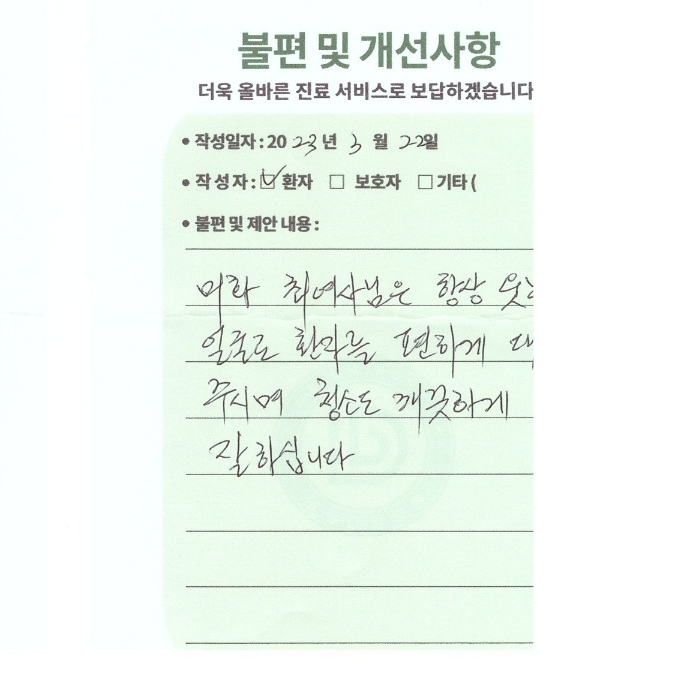 불편 및 개선사항
더욱 올바른 진료 서비스로 보답하겠습니다
• 작성일자 : 20 23 년 3 월 22일
• 작 성 자 : ☑ 환자 □ 보호자 □ 기타 (
• 불편 및 제안 내용 :
미화 최여사님은 항상
얼굴로 환자를 편하게
주시며 청소도 깨끗하게
잘 하십니다